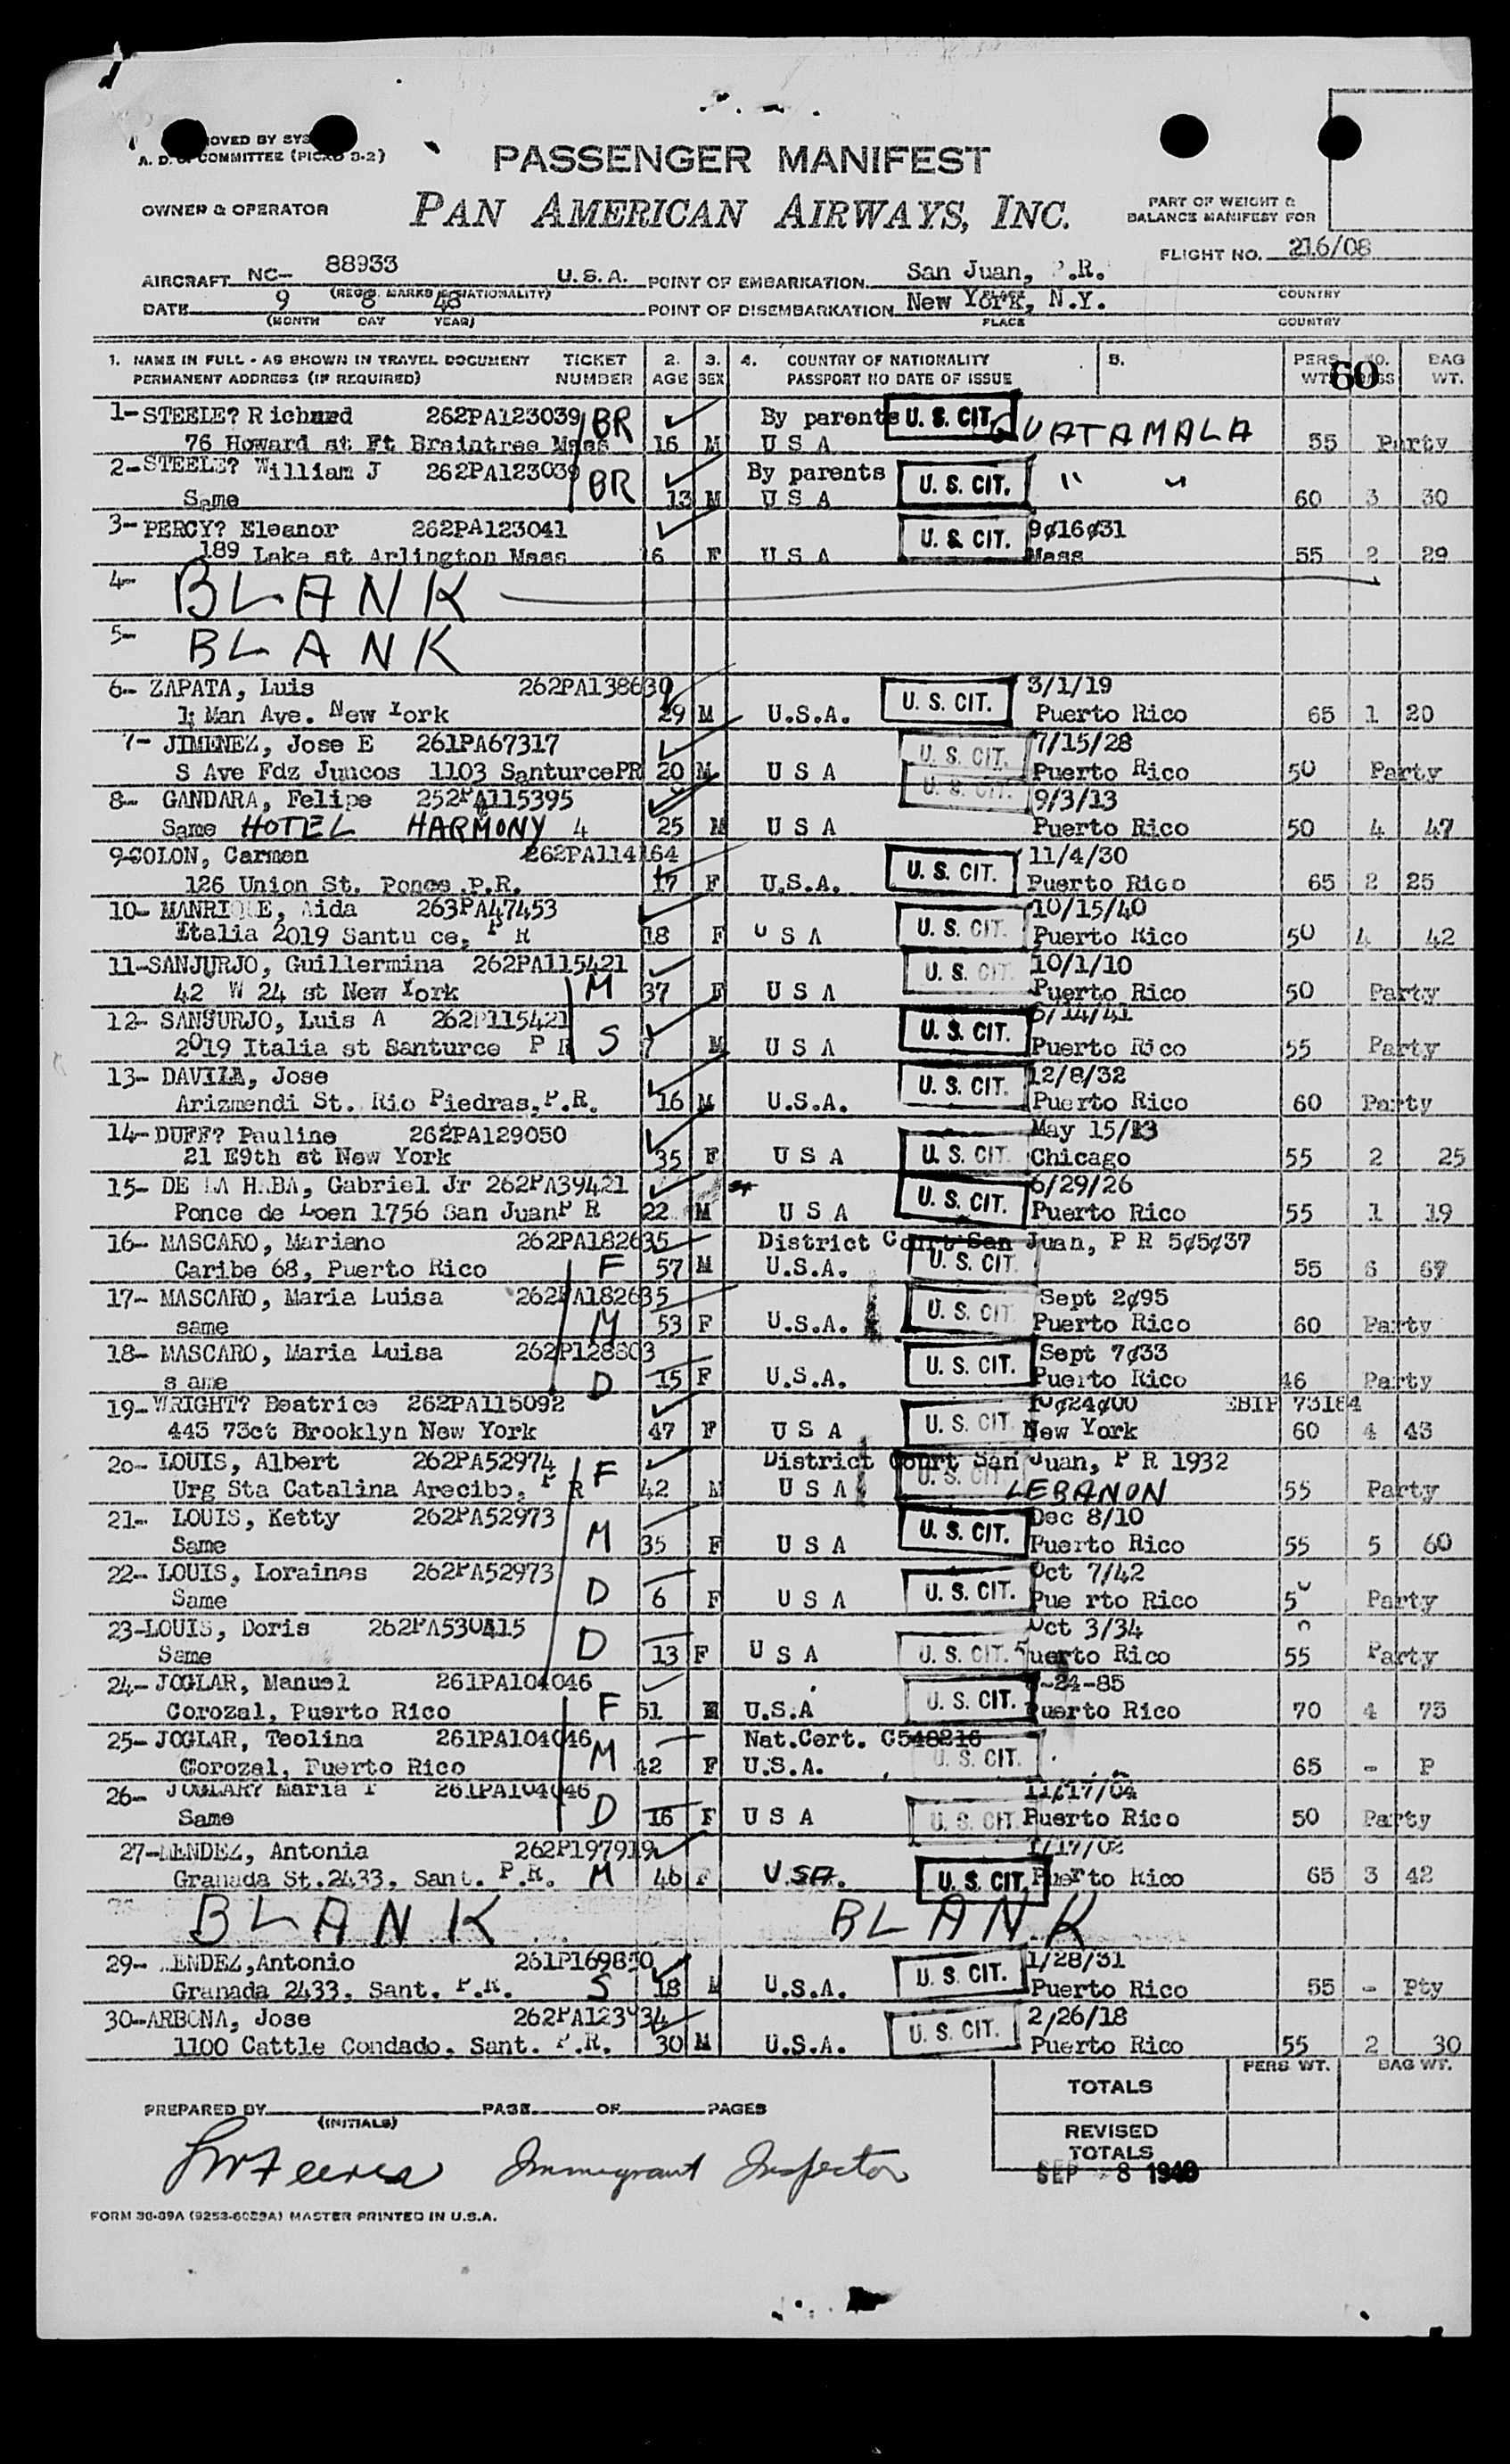 A. D. COMMITTEE (PICAO D-2)
PASSENGER MANIFEST
OWNER & OPERATOR
PAN AMERICAN AIRWAYS, INC.
PART OF WEIGHT &
BALANCE MANIFEST FOR
FLIGHT NO. 216/08
AIRCRAFT NC- 88933 U.S.A. POINT OF EMBARKATION San Juan, P.R.
(REGIS. MARKS & NATIONALITY) PLACE COUNTRY
DATE 9 8 48 POINT OF DISEMBARKATION New York, N.Y.
(MONTH DAY YEAR) PLACE COUNTRY
1. NAME IN FULL - AS SHOWN IN TRAVEL DOCUMENT TICKET 2. 3. 4. COUNTRY OF NATIONALITY 5. PERS NO. BAG
PERMANENT ADDRESS (IF REQUIRED) NUMBER AGE SEX PASSPORT NO DATE OF ISSUE WT. 60 WT.
1- STEELE? Richard 262PA123039 BR By parents U. S. CIT. GUATAMALA
76 Howard st Ft Braintree Mass 16 M U S A 55 Party
2- STEELE? William J 262PA123039 BR By parents U. S. CIT. " "
Same 13 M U S A 60 3 30
3- PERCY? Eleanor 262PA123041 U. S. CIT. 9ø16ø31
189 Lake st Arlington Mass 16 F U S A Mass 55 2 29
4- BLANK
5- BLANK
6- ZAPATA, Luis 262PA138630 U. S. CIT. 3/1/19
Man Ave. New York 29 M U.S.A. Puerto Rico 65 1 20
7- JIMENEZ, Jose E 261PA67317 U. S. CIT. 7/15/28
S Ave Fdz Juncos 1103 SanturcePR 20 M U S A Puerto Rico 50 Party
8- GANDARA, Felipe 252PA115395 U. S. CIT. 9/3/13
Same HOTEL HARMONY 4 25 M U S A Puerto Rico 50 4 47
9-COLON, Carmen 262PA114164 U. S. CIT. 11/4/30
126 Union St. Ponce .P.R. 17 F U.S.A. Puerto Rico 65 2 25
10- MANRIQUE, Aida 263PA47453 U. S. CIT. 10/15/40
Italia 2019 Santu ce, P R 18 F U S A Puerto Rico 50 4 42
11-SANJURJO, Guillermina 262PA115421 M U. S. CIT. 10/1/10
42 W 24 st New York 37 F U S A Puerto Rico 50 Party
12- SANJURJO, Luis A 262P115421 S U. S. CIT. /14/41
2019 Italia st Santurce P R 7 M U S A Puerto Rico 55 Party
13- DAVILA, Jose U. S. CIT. 12/8/32
Arizmendi St. Rio Piedras, P.R. 16 M U.S.A. Puerto Rico 60 Party
14- DUFF? Pauline 262PA129050 U. S. CIT. May 15/13
21 E9th st New York 35 F U S A Chicago 55 2 25
15- DE LA HABA, Gabriel Jr 262PA39421 U. S. CIT. 6/29/26
Ponce de Loen 1756 San Juan P R 22 M U S A Puerto Rico 55 1 19
16- MASCARO, Mariano 262PA182635 District Court San Juan, P R 5ø5ø37
Caribe 68, Puerto Rico F 57 M U.S.A. U. S. CIT. 55 6 67
17- MASCARO, Maria Luisa 262PA182635 U. S. CIT. Sept 2ø95
same M 53 F U.S.A. Puerto Rico 60 Party
18- MASCARO, Maria Luisa 262P128803 U. S. CIT. Sept 7ø33
s ame D 15 F U.S.A. Puerto Rico 46 Party
19- WRIGHT? Beatrice 262PA115092 U. S. CIT. 10ø24ø00 EBIP 73184
443 73ct Brooklyn New York 47 F U S A New York 60 4 43
20- LOUIS, Albert 262PA52974 F District Court San Juan, P R 1932
Urg Sta Catalina Arecibo, P R 42 M U S A U. S. CIT. LEBANON 55 Party
21- LOUIS, Ketty 262PA52973 U. S. CIT. Dec 8/10
Same M 35 F U S A Puerto Rico 55 5 60
22- LOUIS, Loraines 262PA52973 U. S. CIT. Oct 7/42
Same D 6 F U S A Pue rto Rico 50 Party
23-LOUIS, Doris 262PA530415 Oct 3/34
Same D 13 F U S A U. S. CIT. Puerto Rico 55 Party
24- JOGLAR, Manuel 261PA104046 U. S. CIT. -24-85
Corozal, Puerto Rico F 51 M U.S.A Puerto Rico 70 4 73
25- JOGLAR, Teolina 261PA104046 Nat.Cert. C548216
Corozal, Puerto Rico M 42 F U.S.A. U. S. CIT. 65 - P
26- JOGLAR? Maria T 261PA104046 11/17/04
Same D 16 F U S A U. S. CIT. Puerto Rico 50 Party
27-MENDEZ, Antonia 262P197919 1/17/02
Granada St.2433, Sant. P.R. M 46 F U.S.A. U. S. CIT. Puerto Rico 65 3 42
BLANK BLANK
29- MENDEZ,Antonio 261P169850 U. S. CIT. 1/28/31
Granada 2433, Sant. P.R. S 18 M U.S.A. Puerto Rico 55 - Pty
30-ARBONA, Jose U. S. CIT. 2/26/18
1100 Cattle Condado, Sant. P.R. 30 M U.S.A. Puerto Rico 55 2 30
PERS WT. BAG WT.
TOTALS
PREPARED BY PAGE OF PAGES
(INITIALS)
REVISED
TOTALS
Immigrant Inspector
SEP - 8 1948
FORM 30-39A MASTER PRINTED IN U.S.A.